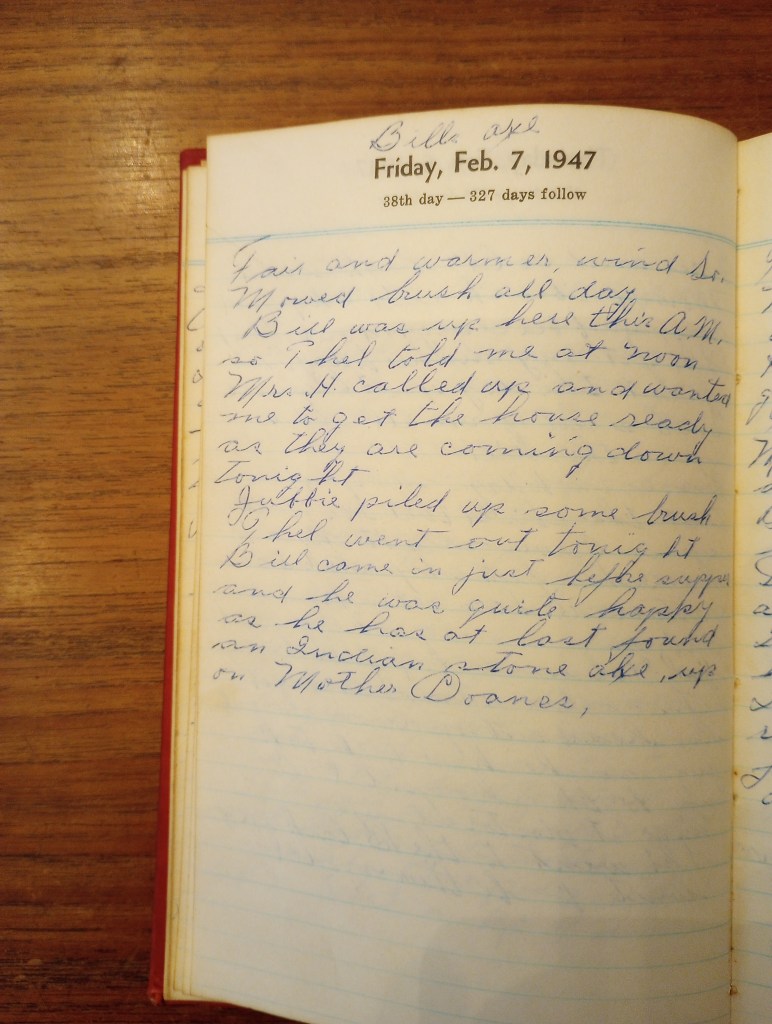 Bills axe
Friday, Feb. 7, 1947
38th day — 327 days follow
Fair and warmer, wind So.
Mowed brush all day
Bill was up here this A.M.
so Thel told me at noon
Mrs. H. called up and wanted
me to get the house ready
as they are coming down
tonight
piled up some brush
Thel went out tonight
Bill came in just before supper
and he was quite happy
as he has at last found
an Indian stone axe, up
on Mother Doanes,